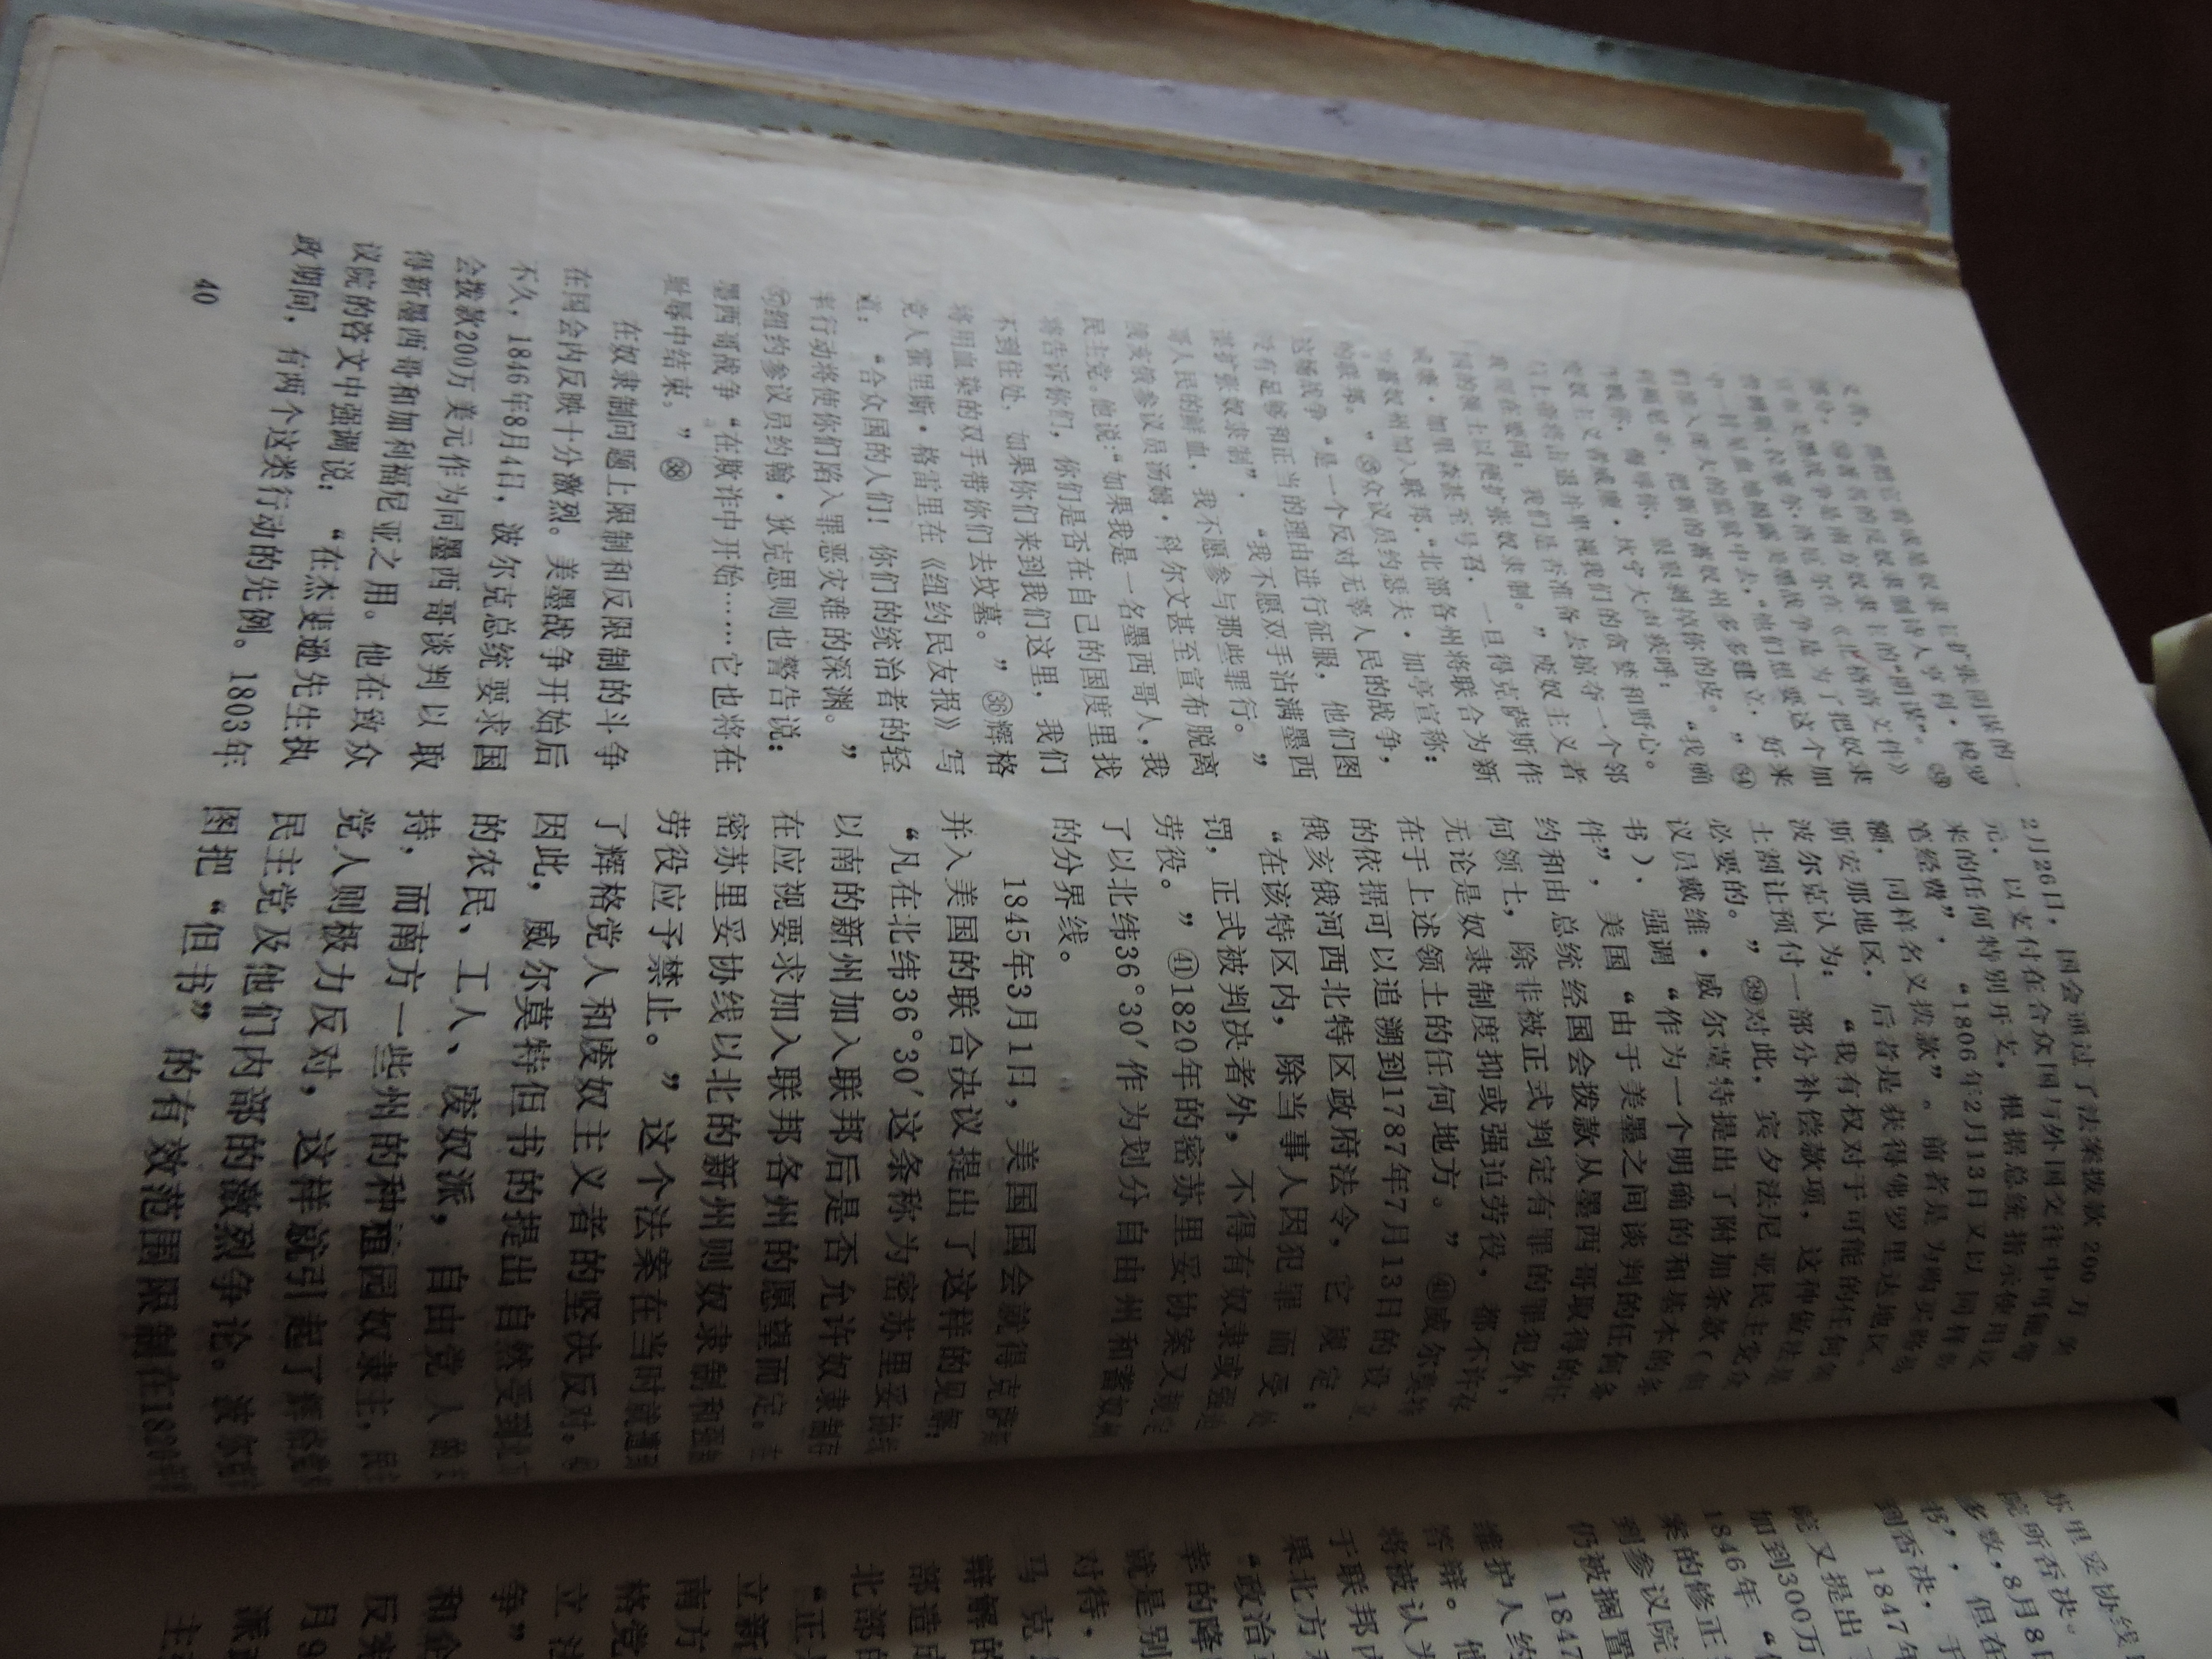 义者，都把它看成是奴隶主扩张阴谋的一
部分。著名的反奴隶制诗人亨利·梭罗
宣布美墨战争是南方奴隶主的“阴谋”。㉝
詹姆斯·拉塞尔·洛厄尔在《北格洛文件》
中一针见血地揭露美墨战争是为了把奴隶
们投入庞大的监狱中去，“他们想要这个加
利福尼亚，把新的蓄奴州多多建立，好来
你，侮辱你，狠狠剥掉你的皮。”㉞
废奴主义者威廉·坎宁大声疾呼：“我确
上帝将击退并卑视我们的贪婪和野心。
我现在要问：我们是否准备去掠夺一个邻
国的领土以便扩张奴隶制。”废奴主义者
威廉·加里森甚至号召，一旦得克萨斯作
为蓄奴州加入联邦，“北部各州将联合为新
的联邦。”㉟众议员约瑟夫·加亭宣称：
这场战争“是一个反对无辜人民的战争，
没有足够和正当的理由进行征服，他们图
谋扩张奴隶制”，“我不愿双手沾满墨西
哥人民的鲜血，我不愿参与那些罪行。”
俄亥俄参议员汤姆·科尔文甚至宣布脱离
民主党。他说：“如果我是一名墨西哥人，我
将告诉你们，你们是否在自己的国度里找
不到住处，如果你们来到我们这里，我们
将用血染的双手带你们去坟墓。”㊱辉格
党人霍里斯·格雷里在《纽约民友报》写
道：“合众国的人们！你们的统治者的轻
率行动将使你们陷入罪恶灾难的深渊。”
㊲纽约参议员约翰·狄克思则也警告说：
墨西哥战争“在欺诈中开始……它也将在
耻辱中结束。”㊳
在奴隶制问题上限制和反限制的斗争
在国会内反映十分激烈。美墨战争开始后
不久，1846年8月4日，波尔克总统要求国
会拨款200万美元作为同墨西哥谈判以取
得新墨西哥和加利福尼亚之用。他在致众
议院的咨文中强调说：“在杰斐逊先生执
政期间，有两个这类行动的先例。1803年
40
2月26日，国会通过了法案拨款200万美
元，以支付在合众国与外国交往中可能带
来的任何特别开支，根据总统指示使用这
笔经费”，“1806年2月13日又以同样数
额，同样名义拨款”。前者是为购买路易
斯安那地区，后者是获得佛罗里达地区。
波尔克认为：“我有权对于可能的任何领
土割让预付一部分补偿款项，这种做法是
必要的。”㊴对此，宾夕法尼亚民主党众
议员戴维·威尔莫特提出了附加条款（但
书），强调“作为一个明确的和基本的条
件”，美国“由于美墨之间谈判的任何条
约和由总统经国会拨款从墨西哥取得的任
何领土，除非被正式判定有罪的罪犯外，
无论是奴隶制度抑或强迫劳役，都不许存
在于上述领土的任何地方。”㊵威尔莫特
的依据可以追溯到1787年7月13日的设立
俄亥俄河西北特区政府法令，它规定：
“在该特区内，除当事人因犯罪而受处
罚，正式被判决者外，不得有奴隶或强迫
劳役。”㊶1820年的密苏里妥协案又规定
了以北纬36°30′作为划分自由州和蓄奴州
的分界线。
1845年3月1日，美国国会就得克萨斯
并入美国的联合决议提出了这样的见解：
“凡在北纬36°30′这条称为密苏里妥协线
以南的新州加入联邦后是否允许奴隶制存
在应视要求加入联邦各州的愿望而定。在
密苏里妥协线以北的新州则奴隶制和强制
劳役应予禁止。”这个法案在当时就遭到
了辉格党人和废奴主义者的坚决反对。㊷
因此，威尔莫特但书的提出自然受到北方
的农民、工人、废奴派，自由党人的支
持，而南方一些州的种植园奴隶主，民主
党人则极力反对，这样就引起了辉格党和
民主党及他们内部的激烈争论。波尔克
图把“但书”的有效范围限制在1820年
苏里妥协线
院所否决。
多数，8月8日
书’，但在
到否决，于
1847年
院又提出了
加到300万
1846年“
案的修正
到参议院
仍被搁置
1847
维护人约
答辩。他
将被认为
于联邦内
果北方
“政治
幸的降
就是别
对待，
马克
辩解的
部造成
北部的
“正
立新
南方
格党
立法
争”
和企
反宪
月9
派
主